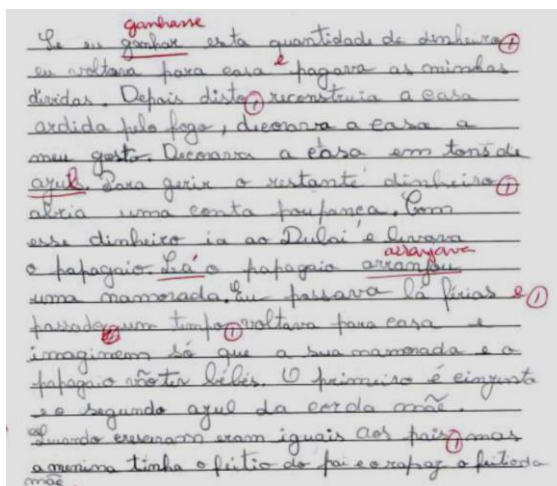 ganhasse
Se eu ganhar esta quantidade de dinheiro,
eu voltava para casa e pagava as minhas
dividas. Depois disto, reconstruia a casa
ardida pelo fogo, decorava a casa a
meu gosto. Decorava a casa em tons de
azul. Para gerir o restante dinheiro,
abria uma conta poupança. Com
esse dinheiro ia ao Dubai e levava
arranjava
o papagaio. Lá o papagaio arranjou
uma namorada. Eu passava lá férias e,
passado um tempo, voltava para casa e
imaginem só que a sua namorada e o
papagaio vão ter bébés. O primeiro é cinzento
e o segundo azul da cor da mãe.
Quando cresceram eram iguais aos pais, mas
a menina tinha o feitio do pai e o rapaz o feitio da
mãe